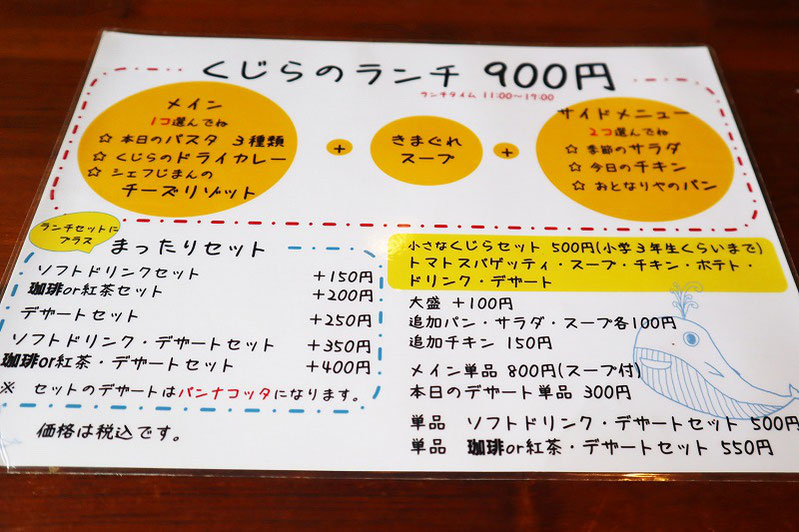 くじらのランチ 900円
ランチタイム 11:00～19:00
メイン
1コ選んでね
☆ 本日のパスタ 3種類
☆ くじらのドライカレー
☆ シェフじまんの
チーズリゾット
+
きまぐれ
スープ
+
サイドメニュー
2コ選んでね
☆ 季節のサラダ
☆ 今日のチキン
☆ おとなりやのパン
ランチセットに
プラス
まったりセット
ソフトドリンクセット +150円
珈琲or紅茶セット +200円
デザートセット +250円
ソフトドリンク・デザートセット +350円
珈琲or紅茶・デザートセット +400円
※ セットのデザートはパンナコッタになります。
価格は税込です。
小さなくじらセット 500円(小学3年生くらいまで)
トマトスパゲッティ・スープ・チキン・ポテト・
ドリンク・デザート
大盛 +100円
追加パン・サラダ・スープ各100円
追加チキン 150円
メイン単品 800円(スープ付)
本日のデザート単品 300円
単品 ソフトドリンク・デザートセット 500円
単品 珈琲or紅茶・デザートセット 550円